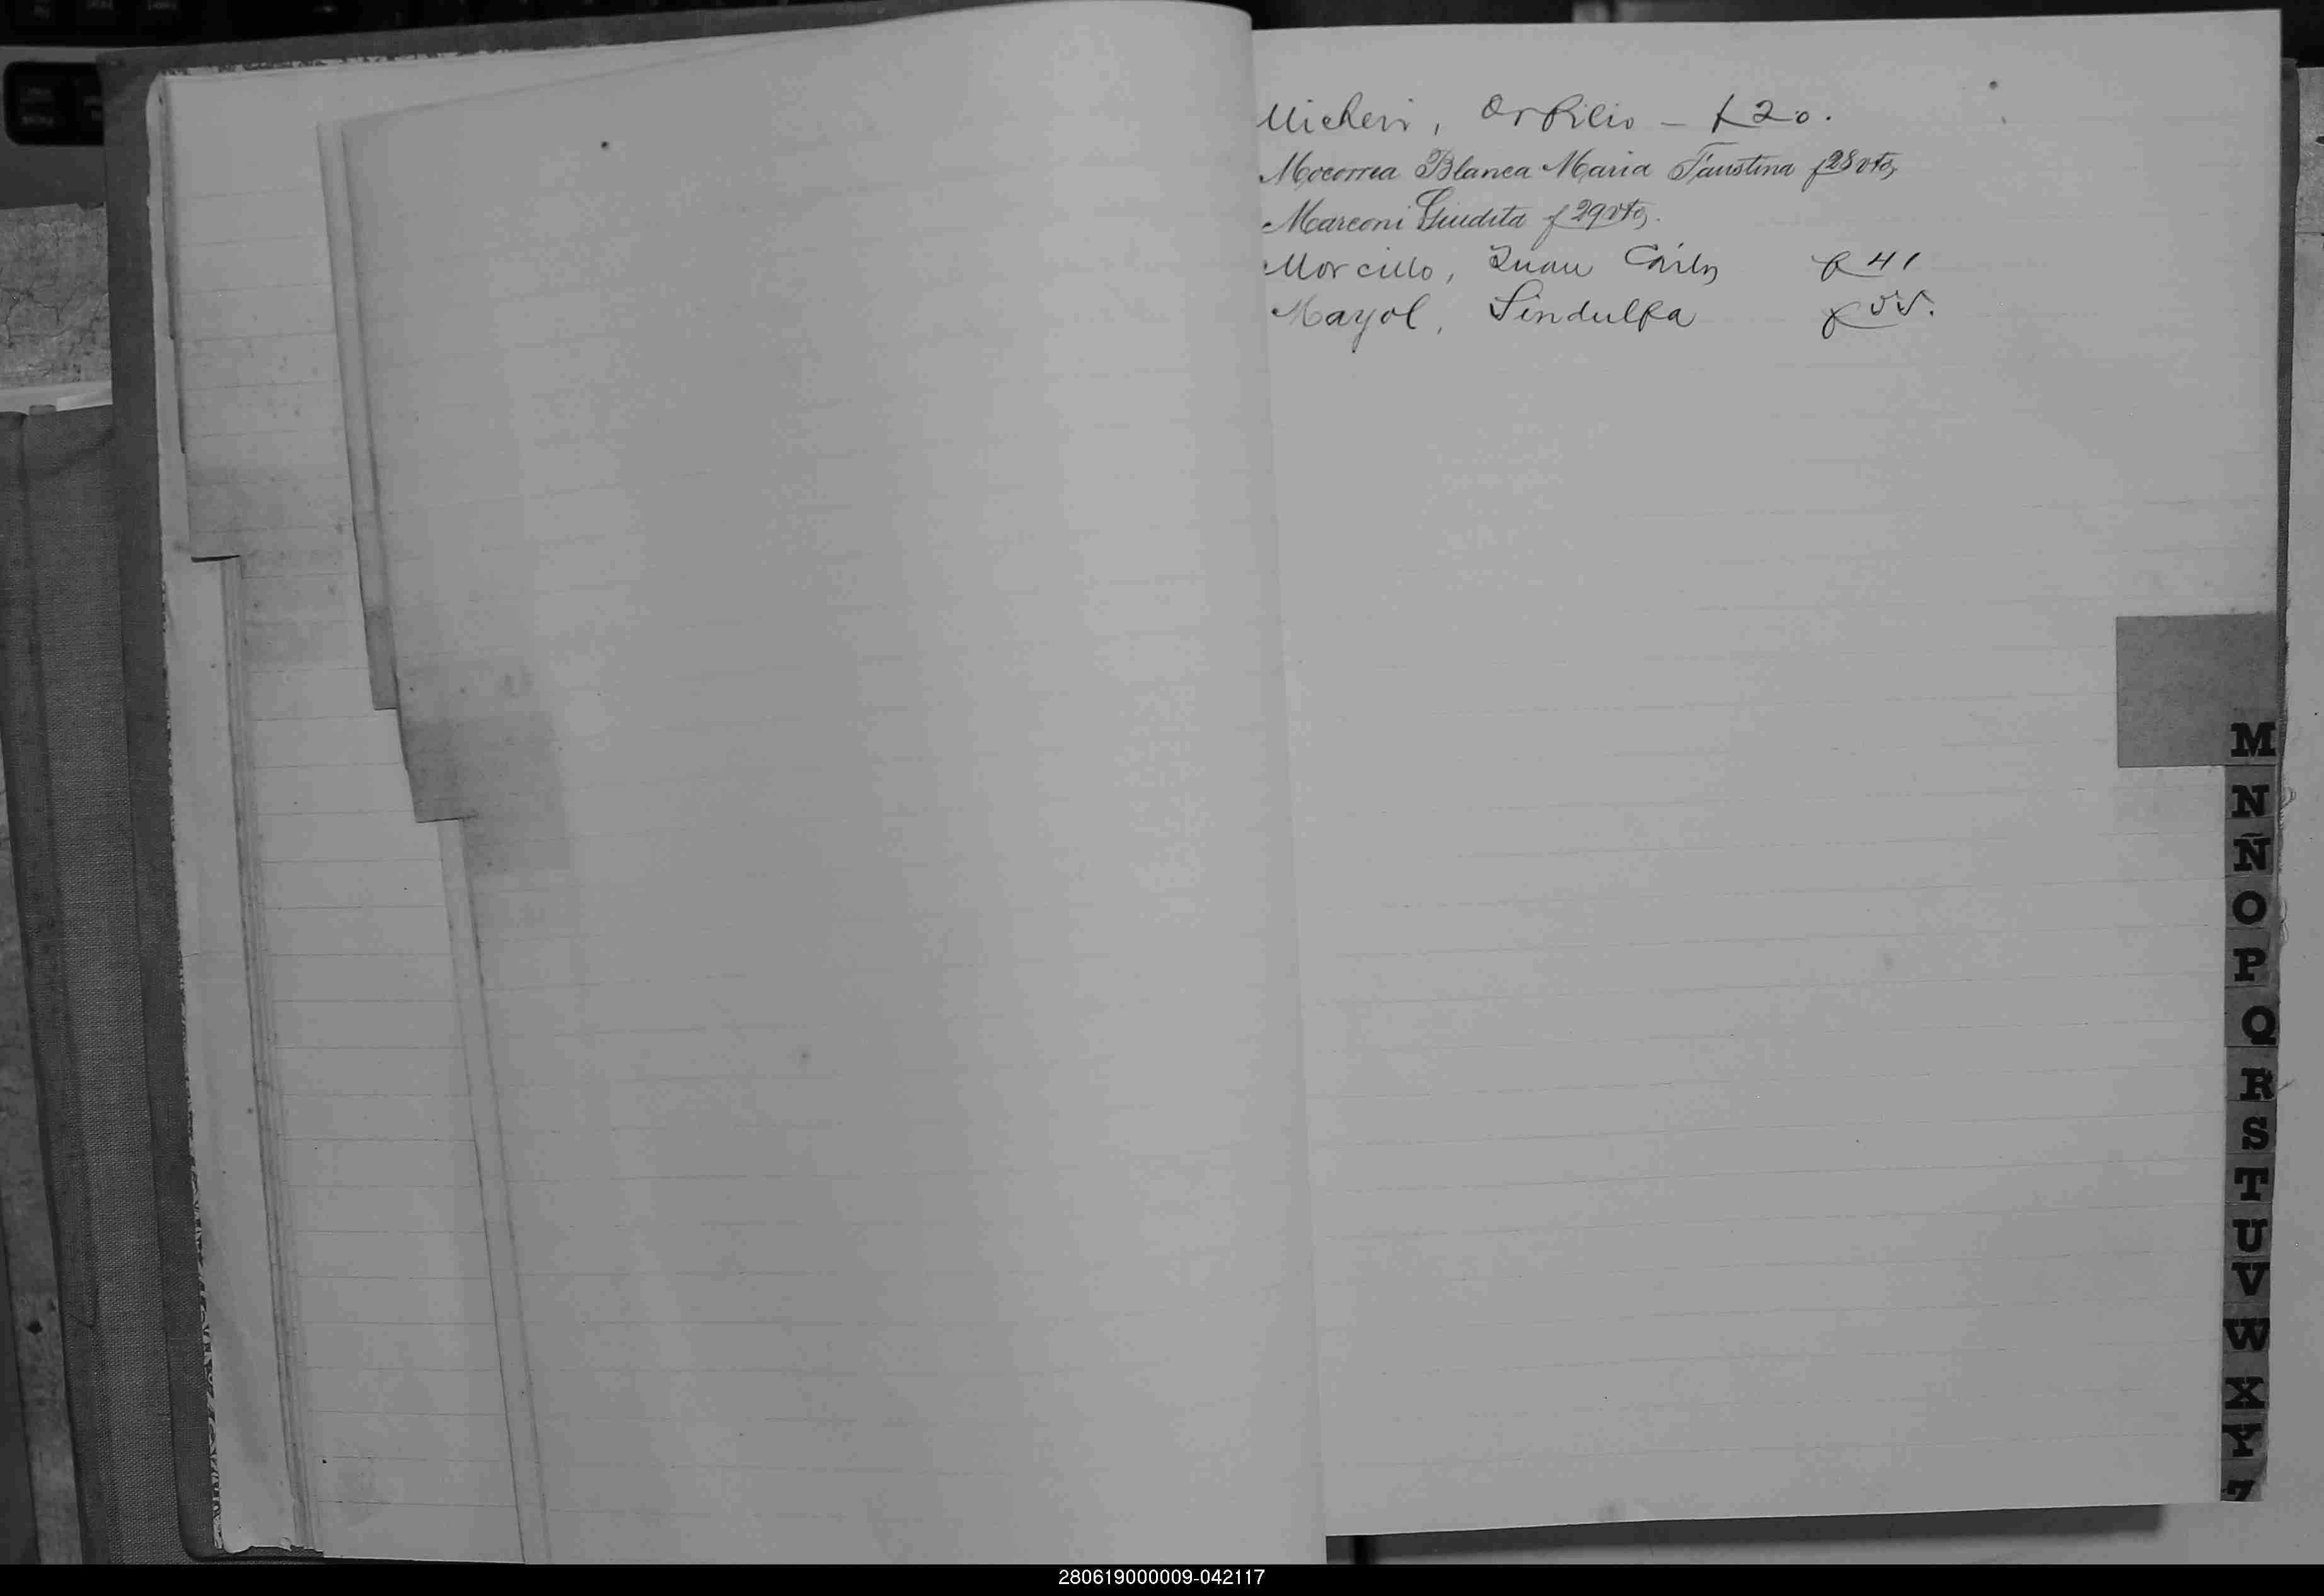 Micheri, Orfilio – f 20.
Mocorrea Blanca Maria Faustina f 28 vto,
Marconi Giudita f 29 vto,
Morcillo, Juan Carlos f 41
Mayol, Sindulfa f 55.
M
N
Ñ
O
P
Q
R
S
T
U
V
W
X
Y
Z
280619000009-042117